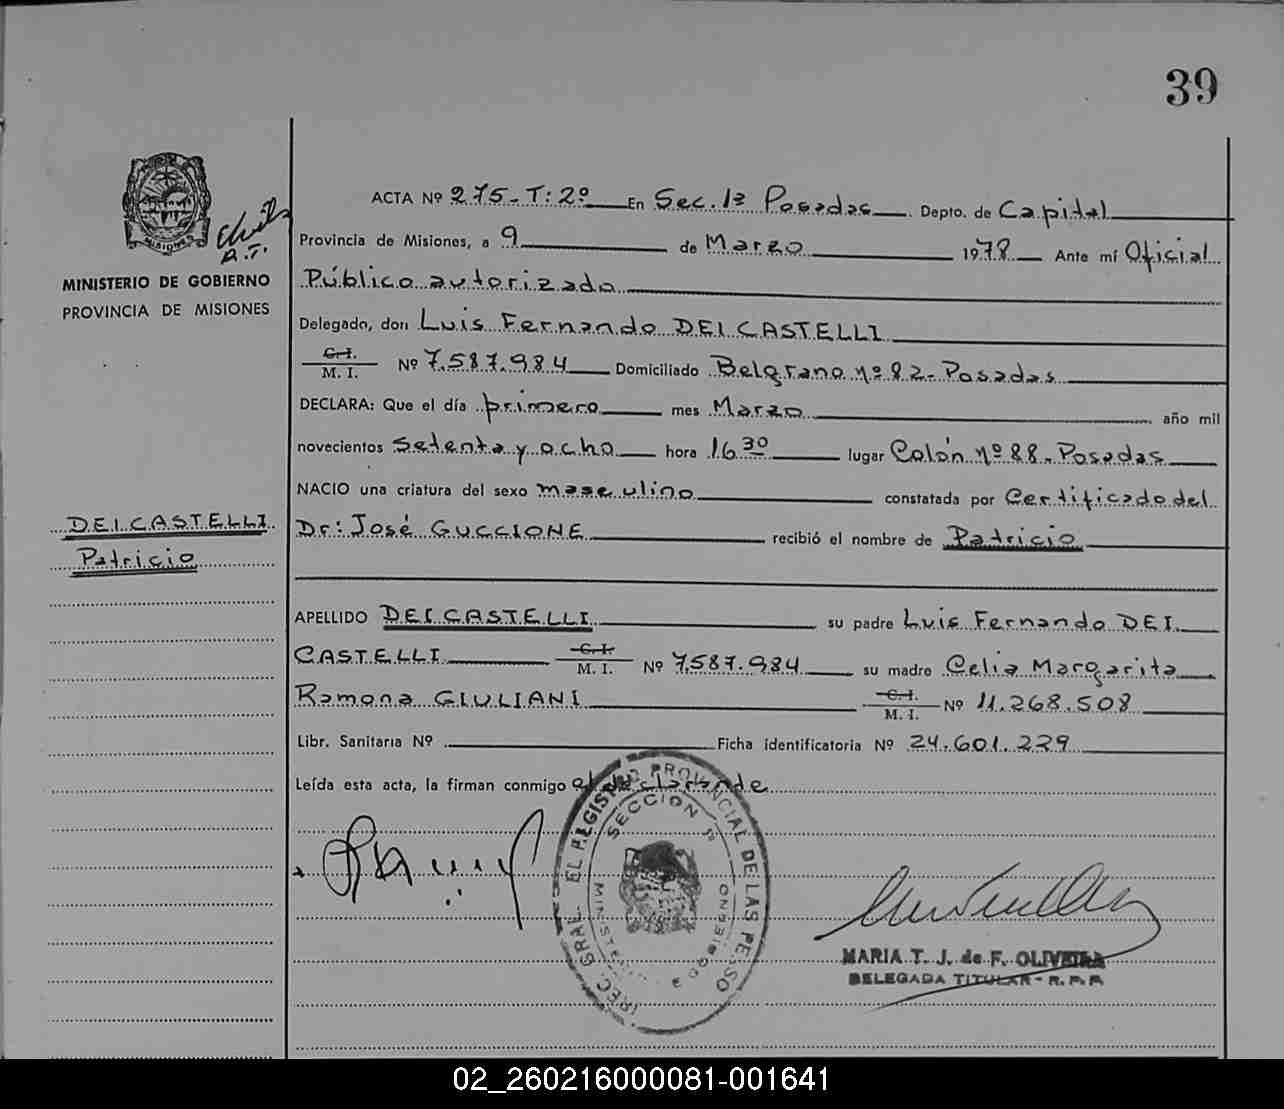 39
ACTA Nº 275-T:2º En Sec. 1ª Posadas Depto. de Capital
Provincia de Misiones, a 9 de Marzo 1978 Ante mí Oficial
Público autorizado
MISIONES
MINISTERIO DE GOBIERNO
PROVINCIA DE MISIONES
Delegado, don Luis Fernando DEI CASTELLI
C. I.
M. I. Nº 7.587.984 Domiciliado Belgrano nº 82-Posadas
DECLARA: Que el día primero mes Marzo año mil
novecientos setenta y ocho hora 16 30 lugar Colón nº 88-Posadas
NACIO una criatura del sexo masculino constatada por Certificado del
Dr: José GUCCIONE recibió el nombre de Patricio
DEI CASTELLI
Patricio
APELLIDO DEI CASTELLI su padre Luis Fernando DEI
CASTELLI C. I. M. I. Nº 7.587.984 su madre Celia Margarita
Ramona GIULIANI C. I. M. I. Nº 11.268.508
Libr. Sanitaria Nº Ficha identificatoria Nº 24.601.229
Leída esta acta, la firman conmigo el declarante
REGISTRO PROVINCIAL DE LAS PERSO
SECCION 1ª
MINISTERIO DE GOBIERNO
MARIA T. J. de F. OLIVEIRA
DELEGADA TITULAR - R. P. P.
02_260216000081-001641